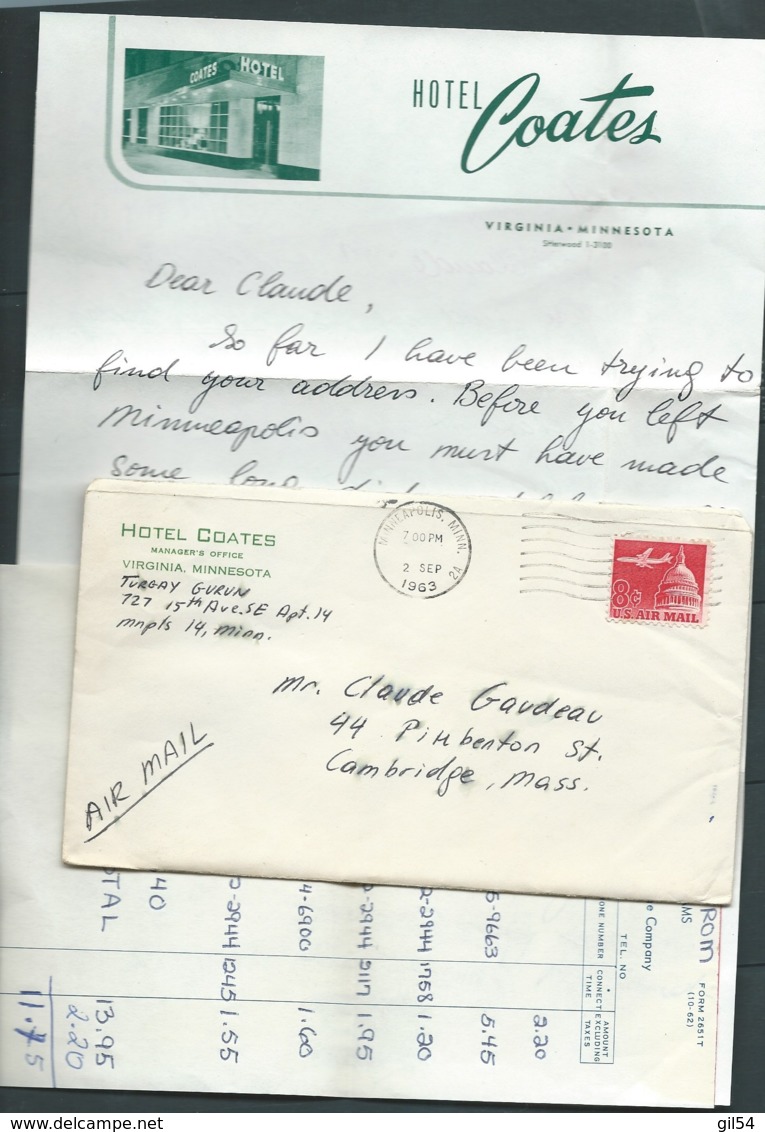 COATES HOTEL
HOTEL Coates
VIRGINIA • MINNESOTA
SHerwood 1-3100
Dear Claude,
So far I have been trying to
find your address. Before you left
Minneapolis you must have made
some long
HOTEL COATES
MANAGER'S OFFICE
VIRGINIA, MINNESOTA
TURGAY GURUN
727 15th Ave. SE Apt. 14
mnpls 14, minn.
MINNEAPOLIS, MINN.
7 00 PM
2 SEP
1963
2A
8¢
U.S. AIR MAIL
Mr. Claude Gaudeau
44 Pittbenton St.
Cambridge, Mass.
AIR MAIL
ROM
AMS
e Company
TEL. NO
FORM 2651T
(10-62)
ONE NUMBER
* CONNECT TIME
AMOUNT EXCLUDING TAXES
2.20
5-9663 5.45
2-2944 1758 1.20
2-2944 2117 1.95
4-6900 1.60
2-2944 1245 1.55
40
TAL 13.95
2.20
11.75
gil54